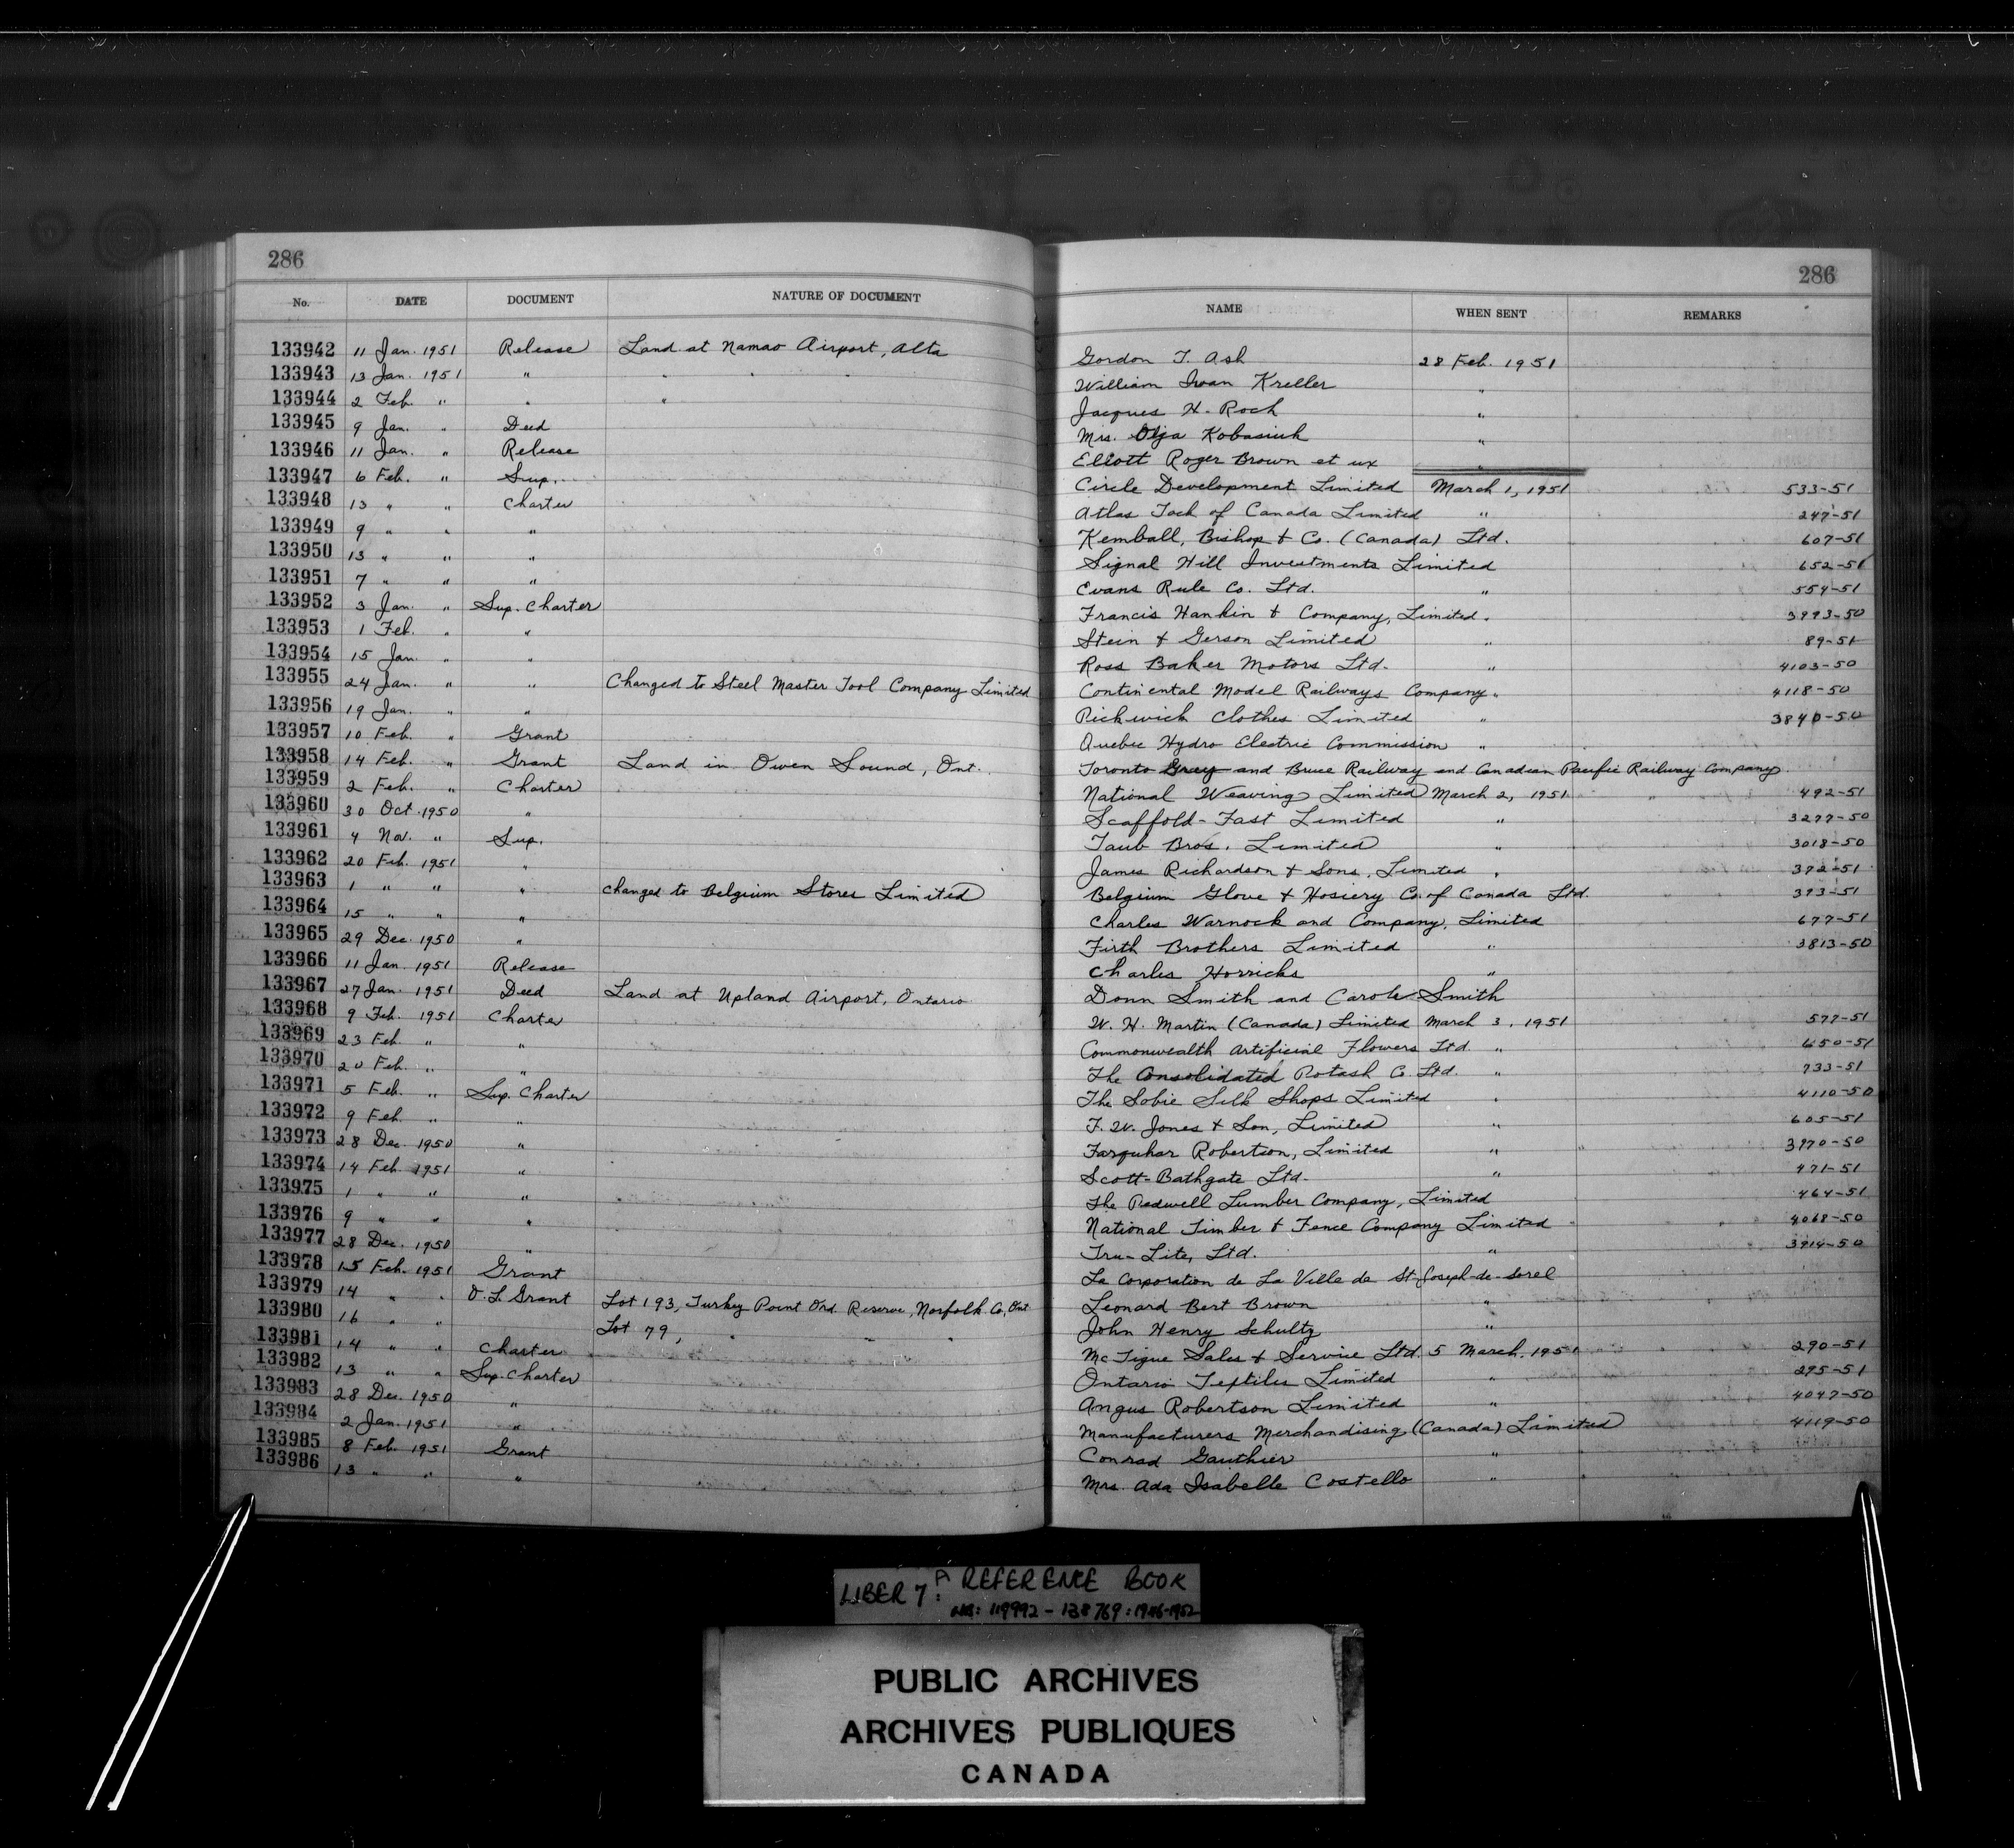 286
No. DATE DOCUMENT NATURE OF DOCUMENT
133942 11 Jan. 1951 Release Land at Namao Airport, Alta
133943 13 Jan. 1951 " " " "
133944 2 Feb. " " "
133945 9 Jan. " Deed
133946 11 Jan. " Release
133947 6 Feb. " Sup.
133948 13 " " Charter
133949 9 " " "
133950 13 " " "
133951 7 " " "
133952 3 Jan. " Sup. Charter
133953 1 Feb. " "
133954 15 Jan. " "
133955 24 Jan. " " Changed to Steel Master Tool Company Limited
133956 19 Jan. " "
133957 10 Feb. " Grant
133958 14 Feb. " Grant Land in Owen Sound, Ont.
133959 2 Feb. " Charter
133960 30 Oct. 1950 "
133961 4 Nov. " Sup.
133962 20 Feb. 1951 "
133963 1 " " " changed to Belgium Stores Limited
133964 15 " " "
133965 29 Dec. 1950 "
133966 11 Jan. 1951 Release
133967 27 Jan. 1951 Deed Land at Upland Airport, Ontario
133968 9 Feb. 1951 Charter
133969 23 Feb. " "
133970 20 Feb. " "
133971 5 Feb. " Sup. Charter
133972 9 Feb. " "
133973 28 Dec. 1950 "
133974 14 Feb. 1951 "
133975 1 " " "
133976 9 " " "
133977 28 Dec. 1950 "
133978 15 Feb. 1951 Grant
133979 14 " " O.L. Grant Lot 193, Turkey Point Ord. Reserve, Norfolk Co, Ont
133980 16 " " Lot 79, " " "
133981 14 " " Charter
133982 13 " " Sup. Charter
133983 28 Dec. 1950 "
133984 2 Jan. 1951 "
133985 8 Feb. 1951 Grant
133986 13 " " "
286
NAME WHEN SENT REMARKS
Gordon T. Ash 28 Feb. 1951
William Iwan Kreller "
Jacques H. Roch "
Mrs. Olga Kobasiuk "
Elliott Roger Brown et ux "
Circle Development Limited March 1, 1951 533-51
Atlas Tack of Canada Limited " 247-51
Kemball, Bishop & Co. (Canada) Ltd. 607-51
Signal Hill Investments Limited 652-51
Evans Rule Co. Ltd. " 554-51
Francis Hankin & Company, Limited. 3993-50
Stein & Gerson Limited " 89-51
Ross Baker Motors Ltd. " 4103-50
Continental Model Railways Company " 4118-50
Pickwick Clothes Limited " 3840-50
Quebec Hydro Electric Commission "
Toronto Grey and Bruce Railway and Canadian Pacific Railway Company
National Weaving Limited March 2, 1951 492-51
Scaffold-Fast Limited " 3277-50
Taub Bros. Limited " 3018-50
James Richardson & Sons, Limited " 372-51
Belgium Glove & Hosiery Co. of Canada Ltd. 393-51
Charles Warnock and Company, Limited 677-51
Firth Brothers Limited " 3813-50
Charles Horricks "
Donn Smith and Carole Smith
W. H. Martin (Canada) Limited March 3, 1951 577-51
Commonwealth Artificial Flowers Ltd. " 650-51
The Consolidated Potash Co. Ltd. " 733-51
The Sobie Silk Shops Limited " 4110-50
F. W. Jones & Son, Limited " 605-51
Farquhar Robertson, Limited " 3970-50
Scott-Bathgate Ltd. " 471-51
The Pedwell Lumber Company, Limited 464-51
National Timber & Fence Company Limited " 4068-50
Tru-Lite, Ltd. " 3914-50
La Corporation de La Ville de St-Joseph-de-Sorel
Leonard Bert Brown "
John Henry Schultz "
McTigue Sales & Service Ltd. 5 March. 1951 290-51
Ontario Textiles Limited " 295-51
Angus Robertson Limited " 4047-50
Manufacturers Merchandising (Canada) Limited 4119-50
Conrad Gauthier "
Mrs. Ada Isabelle Costello "
LIBER 7: A REFERENCE BOOK
NOS: 119992 - 138769: 1946-1952
PUBLIC ARCHIVES
ARCHIVES PUBLIQUES
CANADA